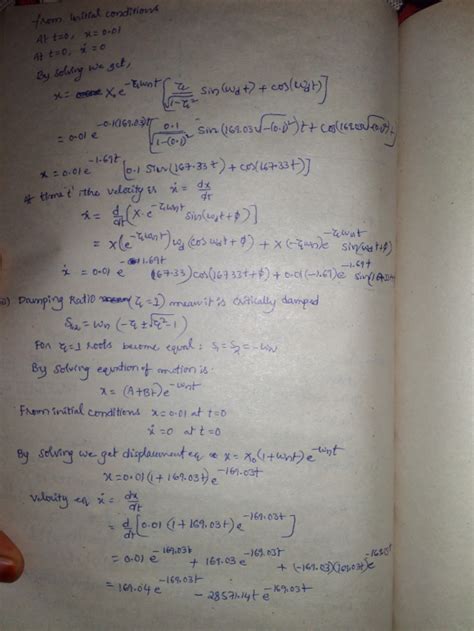 from initial conditions
At t=0, x=0.01
At t=0, ẋ=0
By solving we get,
x = X₀e^(-ζωnt) [ζ/√(1-ζ²) sin(ωdt) + cos(ωdt)]
= 0.01 e^(-0.1(169.03)t) [0.1/√(1-(0.1)²) sin(169.03√-(0.1)²)t + cos(169.03√-(0.1)²)t]
x = 0.01e^(-1.69t) [0.1 sin(167.33t) + cos(167.33t)]
time 't' the velocity is ẋ = dx/dt
ẋ = d/dt [X·e^(-ζωnt) sin(ωdt+ϕ)]
= X(e^(-ζωnt)) ωd (cos ωdt+ϕ) + X(-ζωn)e^(-ζωnt) sin(ωdt+ϕ)
ẋ = 0.01 e^(-1.69t) (167.33) cos(167.33t+ϕ) + 0.01(-1.69)e^(-1.69t)
Damping Ratio (ζ=1) mean it is critically damped
= ωn (-ζ ± √(ζ²-1))
For ζ=1 roots become equal: S₁ = S₂ = -ωn
By solving equation of motion is
x = (A+Bt)e^(-ωnt)
From initial conditions x=0.01 at t=0
ẋ=0 at t=0
By solving we get displacement eq x = X₀(1+ωnt)e^(-ωnt)
x = 0.01(1+169.03t)e^(-169.03t)
Velocity eq ẋ = dx/dt
= d/dt [0.01 (1+169.03t) e^(-169.03t)]
= 0.01 e^(-169.03t) + 169.03 e^(-169.03t) + (-169.03)(169.03t)e^(-169.03t)
= 169.04 e^(-169.03t) - 28571.14t e^(-169.03t)